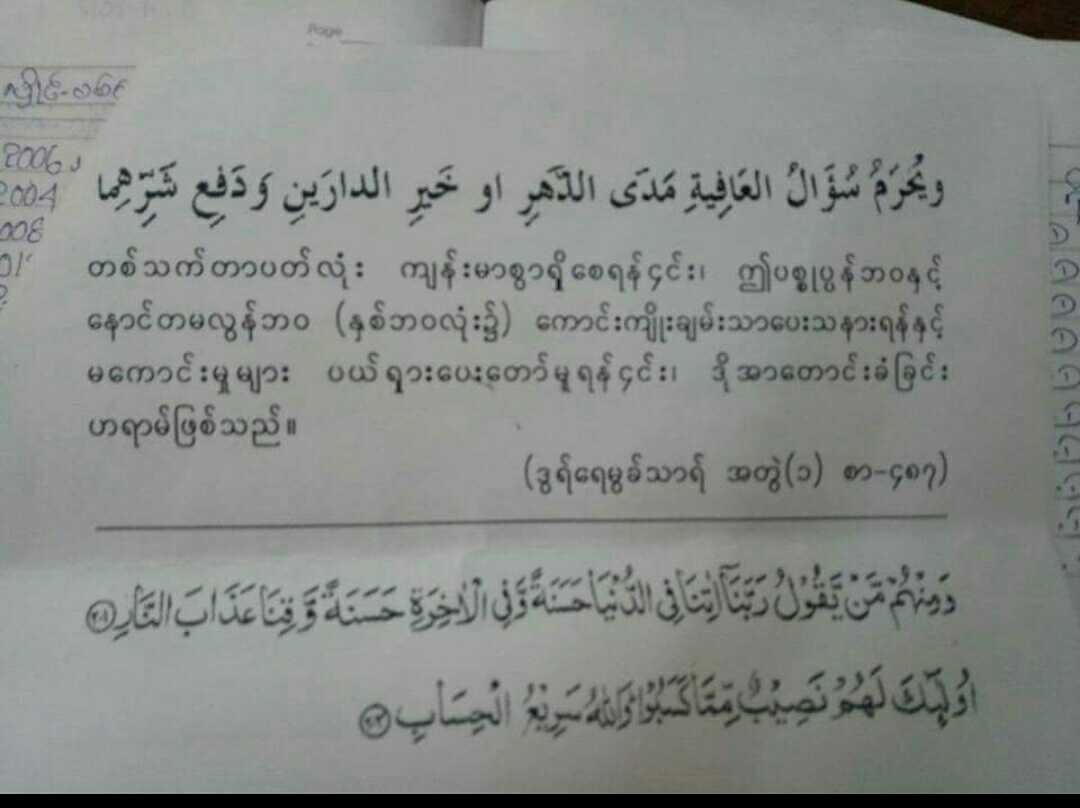 Page
2006
2004
008
ويُحرَمُ سُؤَالُ العَافِيةِ مَدَى الدَّهرِ او خَيرِ الدارَينِ وَدَفعِ شَرِّهِما
တစ်သက်တာပတ်လုံး ကျန်းမာစွာရှိစေရန်၄င်း၊ ဤပစ္စုပ္ပန်ဘဝနှင့်
နောင်တမလွန်ဘဝ (နှစ်ဘဝလုံး၌) ကောင်းကျိုးချမ်းသာပေးသနားရန်နှင့်
မကောင်းမှုများ ပယ်ရှားပေးတော်မူရန်၄င်း၊ ဒိုအာတောင်းခံခြင်း
ဟရာမ်ဖြစ်သည်။
(ဒွရ်ရေမွခ်သာရ် အတွဲ(၁) စာ-၄၈၇)
وَمِنْهُمْ مَّنْ يَّقُوْلُ رَبَّنَآ اٰتِنَا فِى الدُّنْيَا حَسَنَةً وَّفِى الْاٰخِرَةِ حَسَنَةً وَّقِنَا عَذَابَ النَّارِ ۝۲۰۱
اُولٰٓئِكَ لَهُمْ نَصِيْبٌ مِّمَّا كَسَبُوْا وَاللّٰهُ سَرِيْعُ الْحِسَابِ ۝۲۰۲